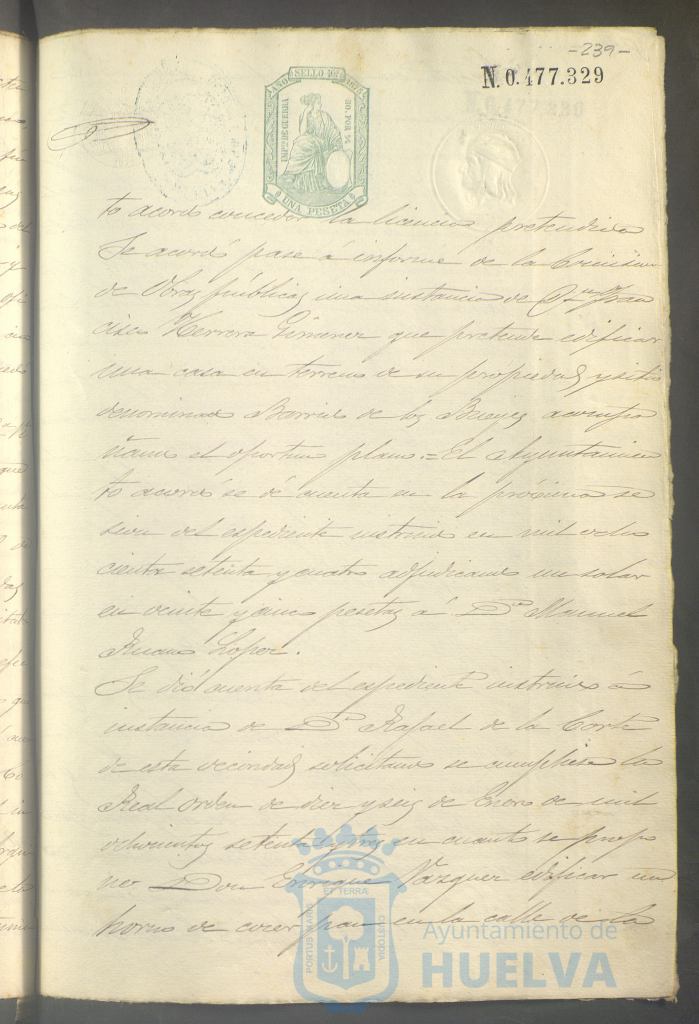 -239-
N.0.477.329
AÑO SELLO 10º 1875
IMPTO DE GUERRA
50 POR %
UNA PESETA
to acordó conceder la licencia pretendida
Se acordó pase á informe de la Comision
de Obras públicas una instancia de Dn Fran
cisco Herrera Gimenez que pretende edificar
una casa en terreno de su propiedad y sitio
denominado Barrio de los Bueyes acompa
ñando el oportuno plano.=El Ayuntamien
to acordó se dé cuenta en la próxima se
sion del espediente instruido en mil ocho
cientos setenta y cuatro adjudicando un solar
en veinte y cinco pesetas á Dn Manuel
Ruano Lopez.
Se dió cuenta del espediente instruido á
instancia de Dn Rafael de la Corte
de esta vecindad solicitando se cumpliese la
Real orden de diez y seis de Enero de mil
ochocientos setenta y en cuanto se propo
ne Don Enrique Vazquez edificar un
horno de cocer pan en la calle de la
PORTUS MARIS ET TERRA CUSTODIA
Ayuntamiento de
HUELVA